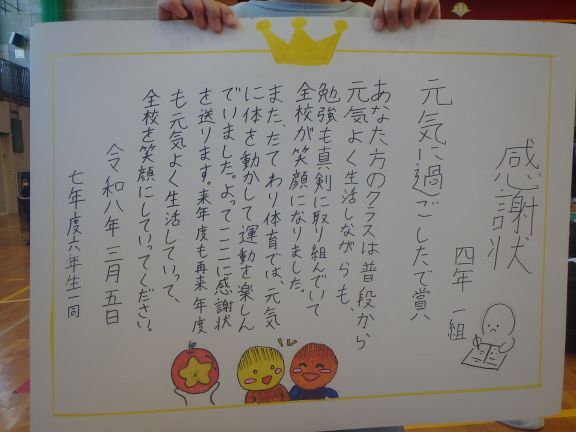 感謝状
四年 一組
元気に過ごしたで賞
あなた方のクラスは普段から
元気よく生活しながらも、
勉強も真剣に取り組んでいて
全校が笑顔になりました。
また、たてわり体育では、元気
に体を動かして運動を楽しん
でいました。よってここに感謝状
を送ります。来年度も再来年度
も元気よく生活していって、
全校を笑顔にしていってください。
令和八年 三月五日
七年度六年生一同